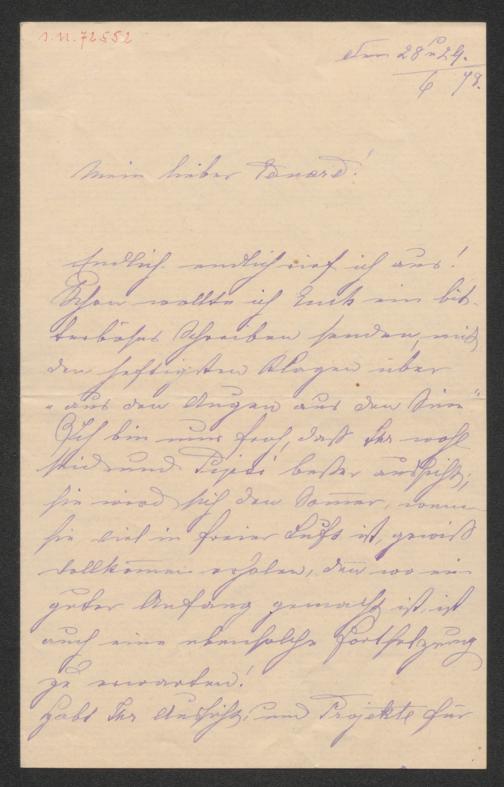 I.N. 72552
Den 28 u 29.
6 78.
Mein lieber Eduard!
Endlich endlich rief ich aus!
Schon wollte ich Euch ein bit-
terböses Schreiben senden, mit
den heftigsten Klagen über
"aus den Augen aus den Sinn"
Ich bin nur froh, daß Ihr wohl
seid und besser aussieht;
sie wird sich den Sommer, wenn
sie viel in freier Luft ist, gewiß
vollkommen erholen, den wo ein
guter Anfang gemacht ist, ist
auch eine ebensolche Fortsetzung
zu erwarten!
Habt Ihr Aussicht, und Projekte für